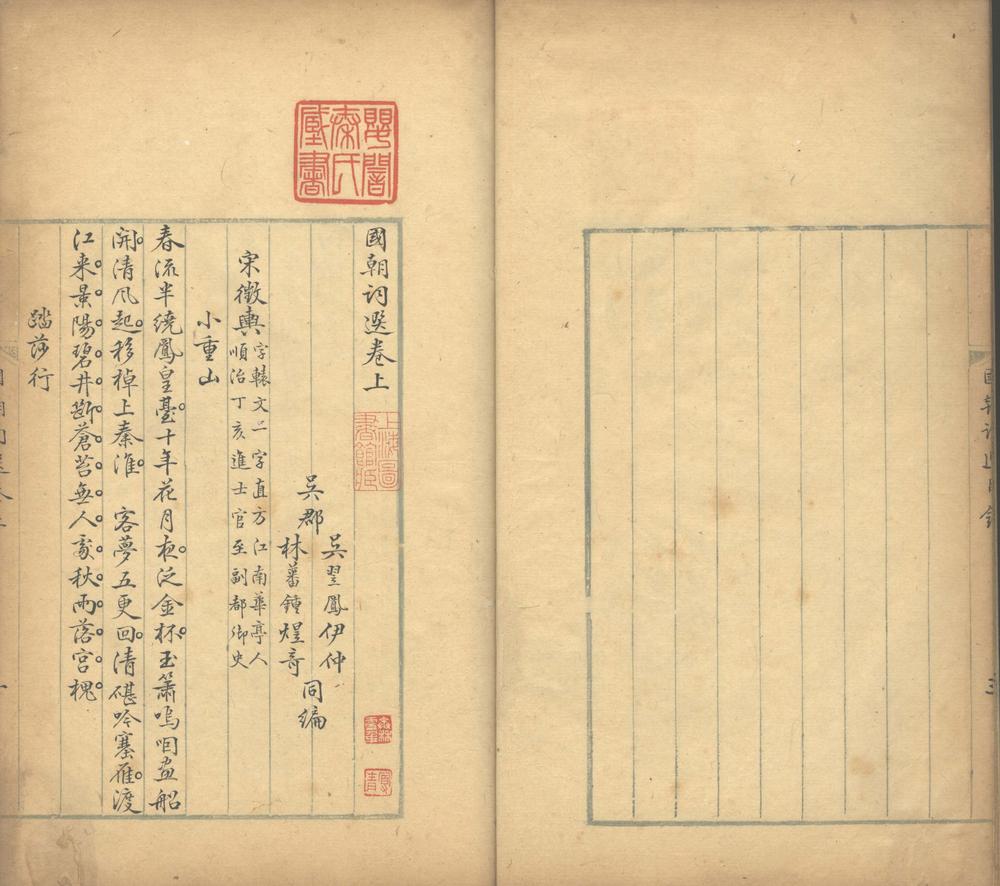 國朝詞選卷上
吳郡
吳翌鳳伊仲
林蕃鍾煜奇
同編
宋徵輿字轅文一字直方江南華亭人
順治丁亥進士官至副都御史
小重山
春流半繞鳳皇臺十年花月夜泛金杯玉簫嗚咽畫船
開清風起移棹上秦淮　客夢五更回清碪吟塞雁渡
江来景陽碧井斷蒼苔無人處秋雨落宮槐
踏莎行
上海圖書館藏